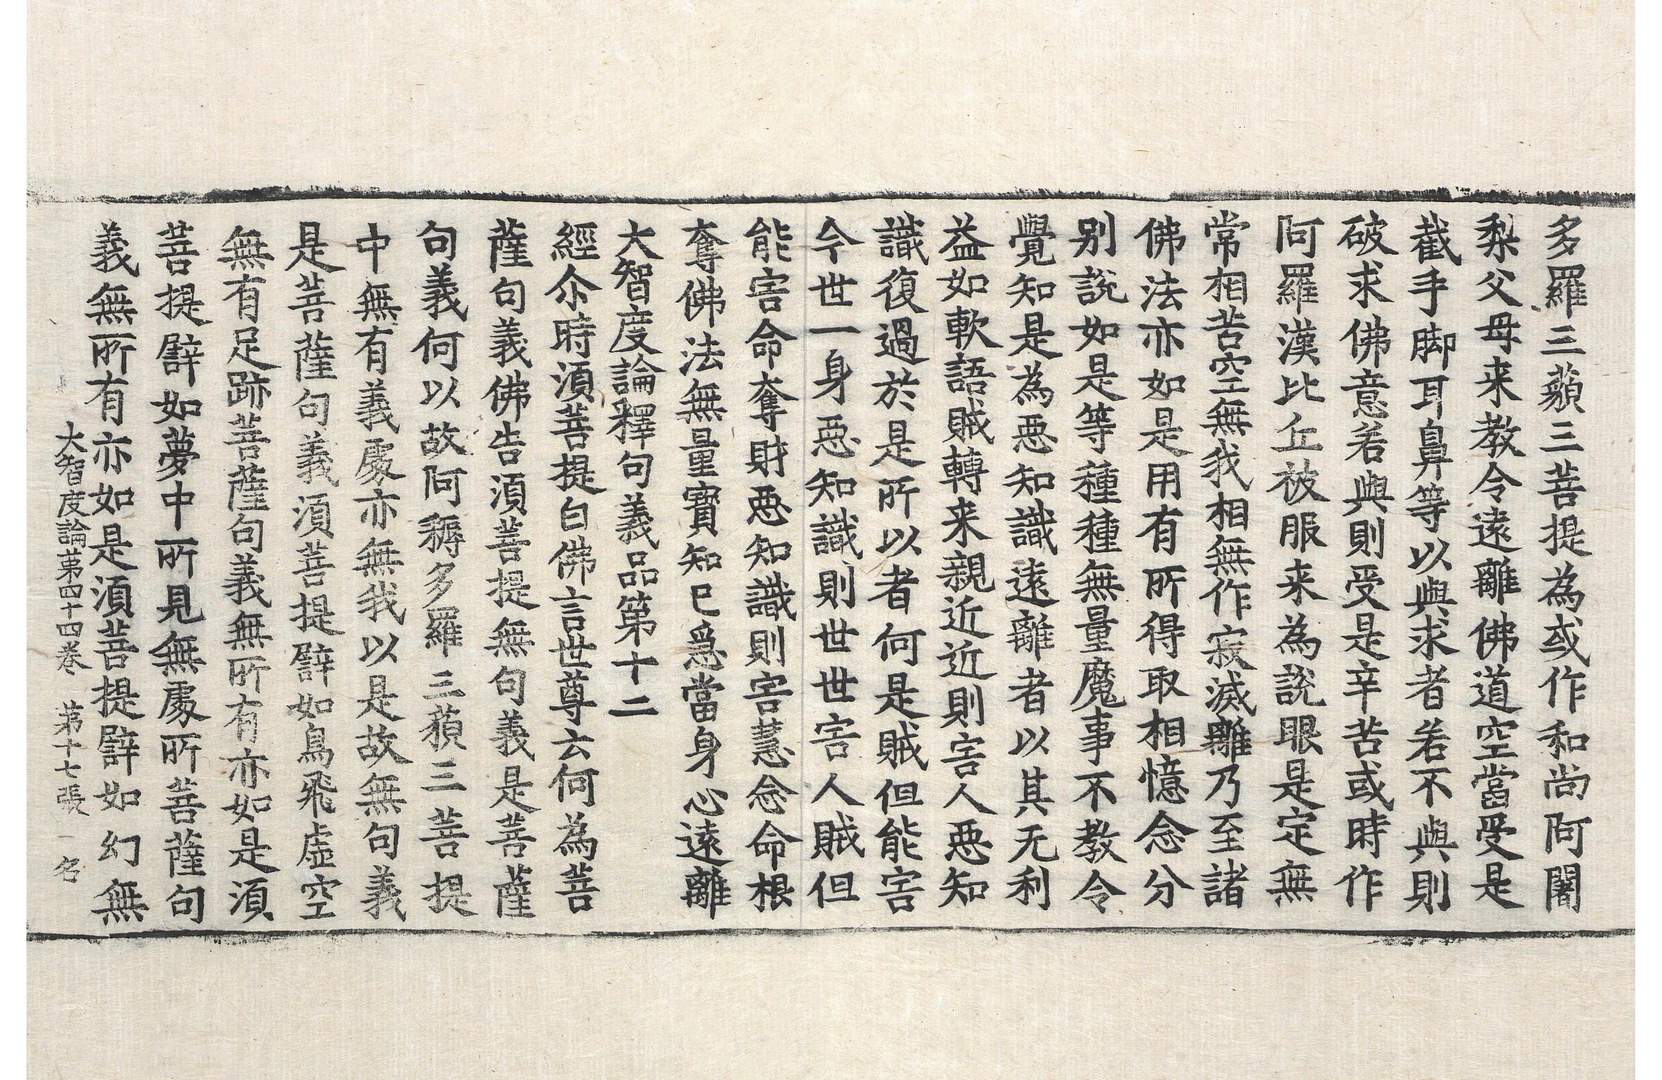 多羅三藐三菩提為或作和尚阿闍
梨父母来教令遠離佛道空當受是
截手脚耳鼻等以與求者若不與則
破求佛意若與則受是辛苦或時作
阿羅漢比丘被服来為說眼是定無
常相苦空無我相無作寂滅離乃至諸
佛法亦如是用有所得取相憶念分
別說如是等種種無量魔事不教令
覺知是為惡知識遠離者以其无利
益如軟語賊轉来親近近則害人惡知
識復過於是所以者何是賊但能害
今世一身惡知識則世世害人賊但
能害命奪財惡知識則害慧念命根
奪佛法無量寶知已為當身心遠離
大智度論釋句義品第十二
經尒時湏菩提白佛言世尊云何為菩
薩句義佛告湏菩提無句義是菩薩
句義何以故阿耨多羅三藐三菩提
中無有義處亦無我以是故無句義
是菩薩句義湏菩提譬如鳥飛虛空
無有足跡菩薩句義無所有亦如是湏
菩提譬如夢中所見無處所菩薩句
義無所有亦如是湏菩提譬如幻無
大智度論苐四十四卷 苐十七張 一名